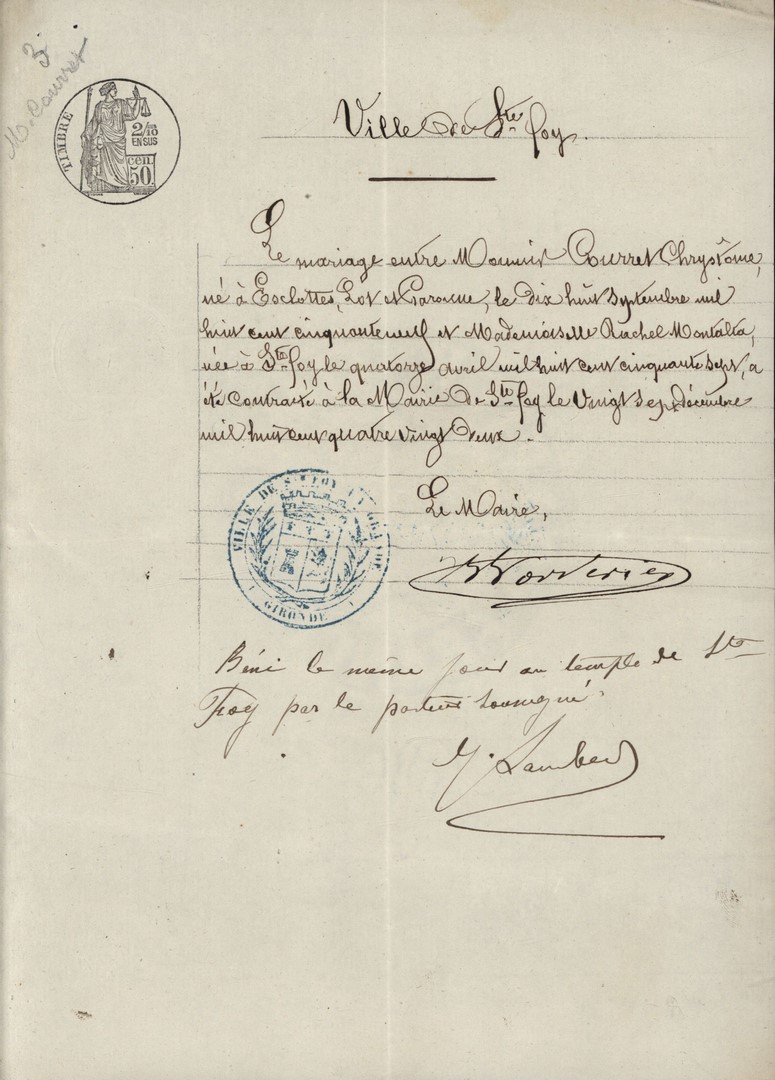 3
M. Courret
TIMBRE
2/10
EN SUS
cen.
50
Ville de Ste foy.
Le mariage entre Monsieur Courret Chrysostôme,
né à Esclottes, Lot et Garonne, le dix huit septembre mil
huit cent cinquante neuf et Mademoiselle Rachel Montalza,
née à Ste foy le quatorze avril mil huit cent cinquante sept, a
été contracté à la Mairie de Ste foy le vingt sept décembre
mil huit cent quatre vingt deux.
Le Maire,
VILLE DE STE FOY LA GRANDE
GIRONDE
Béni le même jour au temple de Ste
Foy par le pasteur soussigné.
Lambert